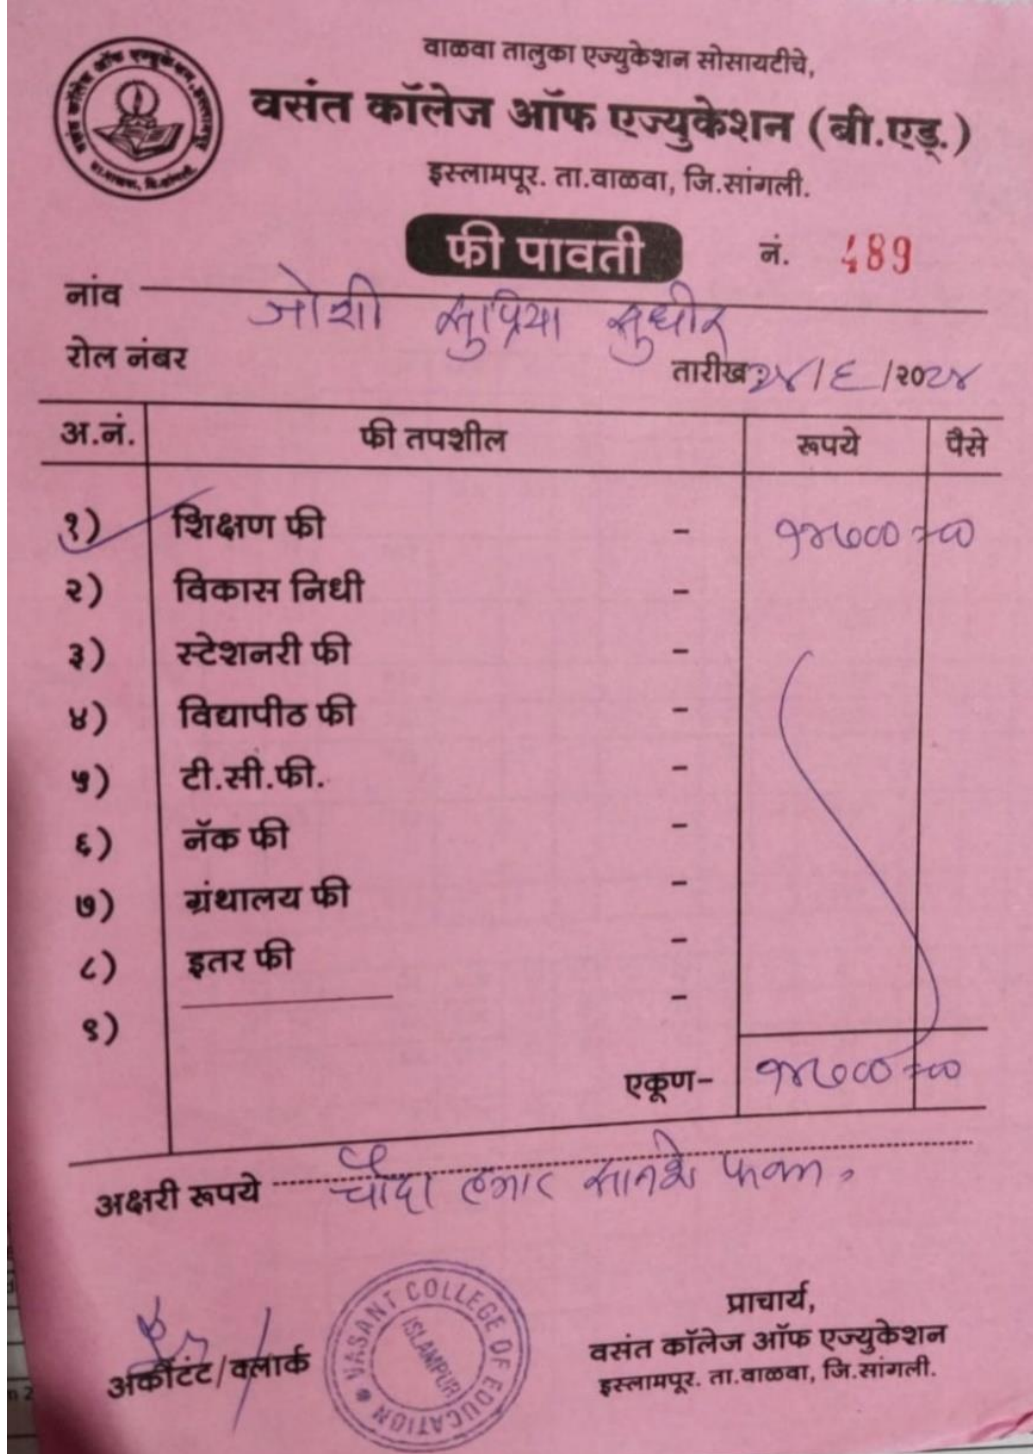 वाळवा तालुका एज्युकेशन सोसायटीचे,
वसंत कॉलेज ऑफ एज्युकेशन (बी.एड्.)
इस्लामपूर. ता.वाळवा, जि.सांगली.
फी पावती नं. 489
नांव जोशी सुप्रिया सुधीर
रोल नंबर तारीख २४/६/२०२४
अ.नं. फी तपशील रूपये पैसे
१) शिक्षण फी - १४७००=००
२) विकास निधी -
३) स्टेशनरी फी -
४) विद्यापीठ फी -
५) टी.सी.फी. -
६) नॅक फी -
७) ग्रंथालय फी -
८) इतर फी -
९) -
एकूण- १४७००=००
अक्षरी रूपये चौदा हजार सातशे फक्त.
अकौंटंट/क्लार्क
VASANT COLLEGE OF EDUCATION
ISLAMPUR
प्राचार्य,
वसंत कॉलेज ऑफ एज्युकेशन
इस्लामपूर. ता.वाळवा, जि.सांगली.